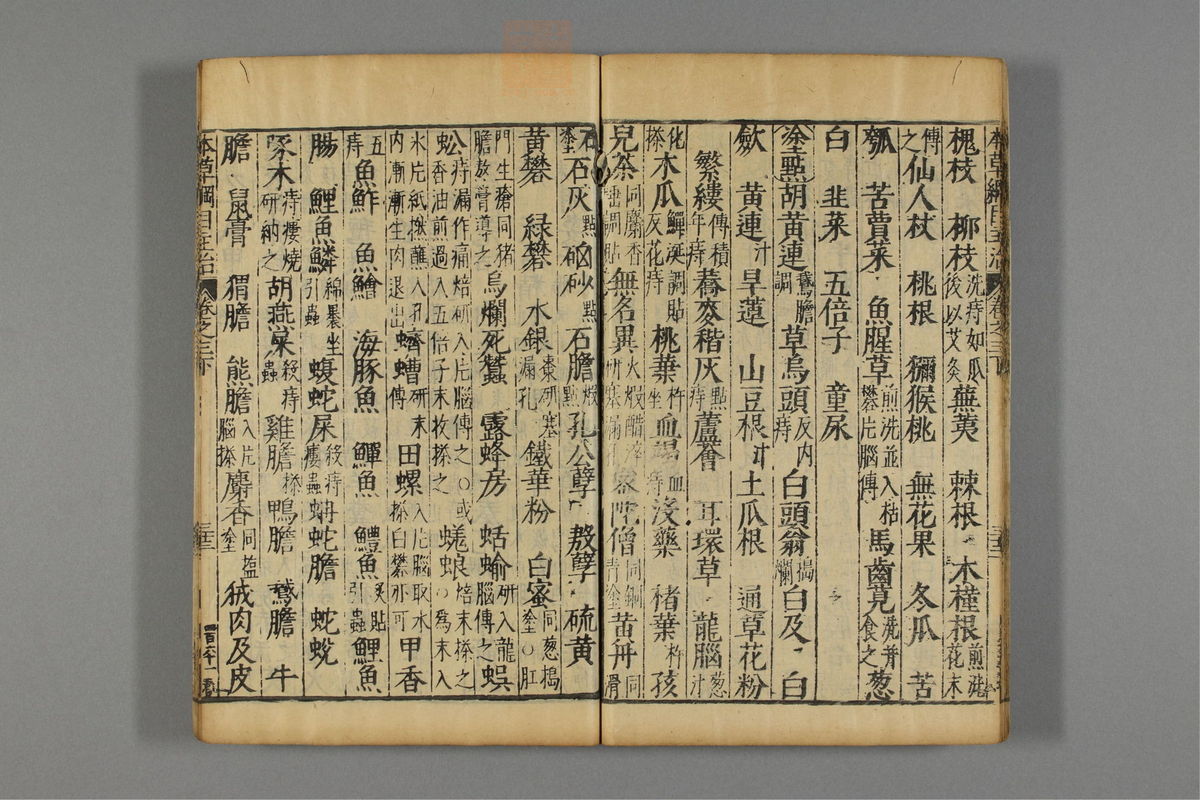 本草綱目主治 卷之三下
槐枝 柳枝洗痔如瓜後以艾灸蕪荑 棘根 木槿根煎洗花末
傅之仙人杖 桃根 獼猴桃 無花果 冬瓜 苦
瓠 苦蕒菜 魚腥草煎洗並入枯礬片腦傅馬齒莧洗并食之葱
白 韭菜 五倍子 童尿
塗點胡黃連鵝膽調草烏頭反內痔白頭翁搗爛白及 白
歛 黃連汁旱蓮 山豆根汁土瓜根 通草花粉
繁縷傅積年痔蕎麥稭灰點痔蘆薈 耳環草 龍腦葱汁
化搽木瓜鱓涎調貼反花痔桃葉杵坐血竭血痔沒藥 楮葉杵 孩
兒茶同麝香唾調貼無名異火煅醋淬研塞漏孔密陀僧同銅青塗黃丹同滑
石塗石灰點硇砂點石膽煅點孔公孽 殷孽 硫黃
黃礬 綠礬 水銀棗研塞漏孔鐵華粉 白蜜同葱搗塗○肛
門生瘡同猪膽熬膏導之烏爛死蠶 露蜂房 蛞蝓研入龍腦傅之蜈
蚣痔漏作痛焙研入片腦傅之○或香油煎過入五倍子末收搽之蜣蜋焙末搽之○爲末入
氷片紙撚蘸入孔漸漸生肉退出蠐螬研末傅田螺入片腦取水搽白礬亦可甲香
五痔魚鮓 魚鱠 海豚魚 鱓魚 鱧魚炙貼引蟲鯉魚
腸 鯉魚鱗綿裹坐引蟲蝮蛇屎殺痔瘻蟲蚺蛇膽 蛇蛻
豕木痔瘻燒研納之胡燕屎殺痔蟲雞膽搽鴨膽 鵞膽 牛
膽 鼠膏 猬膽 熊膽入片腦搽麝香同塩塗狨肉及皮
本草綱目主治 卷之三下